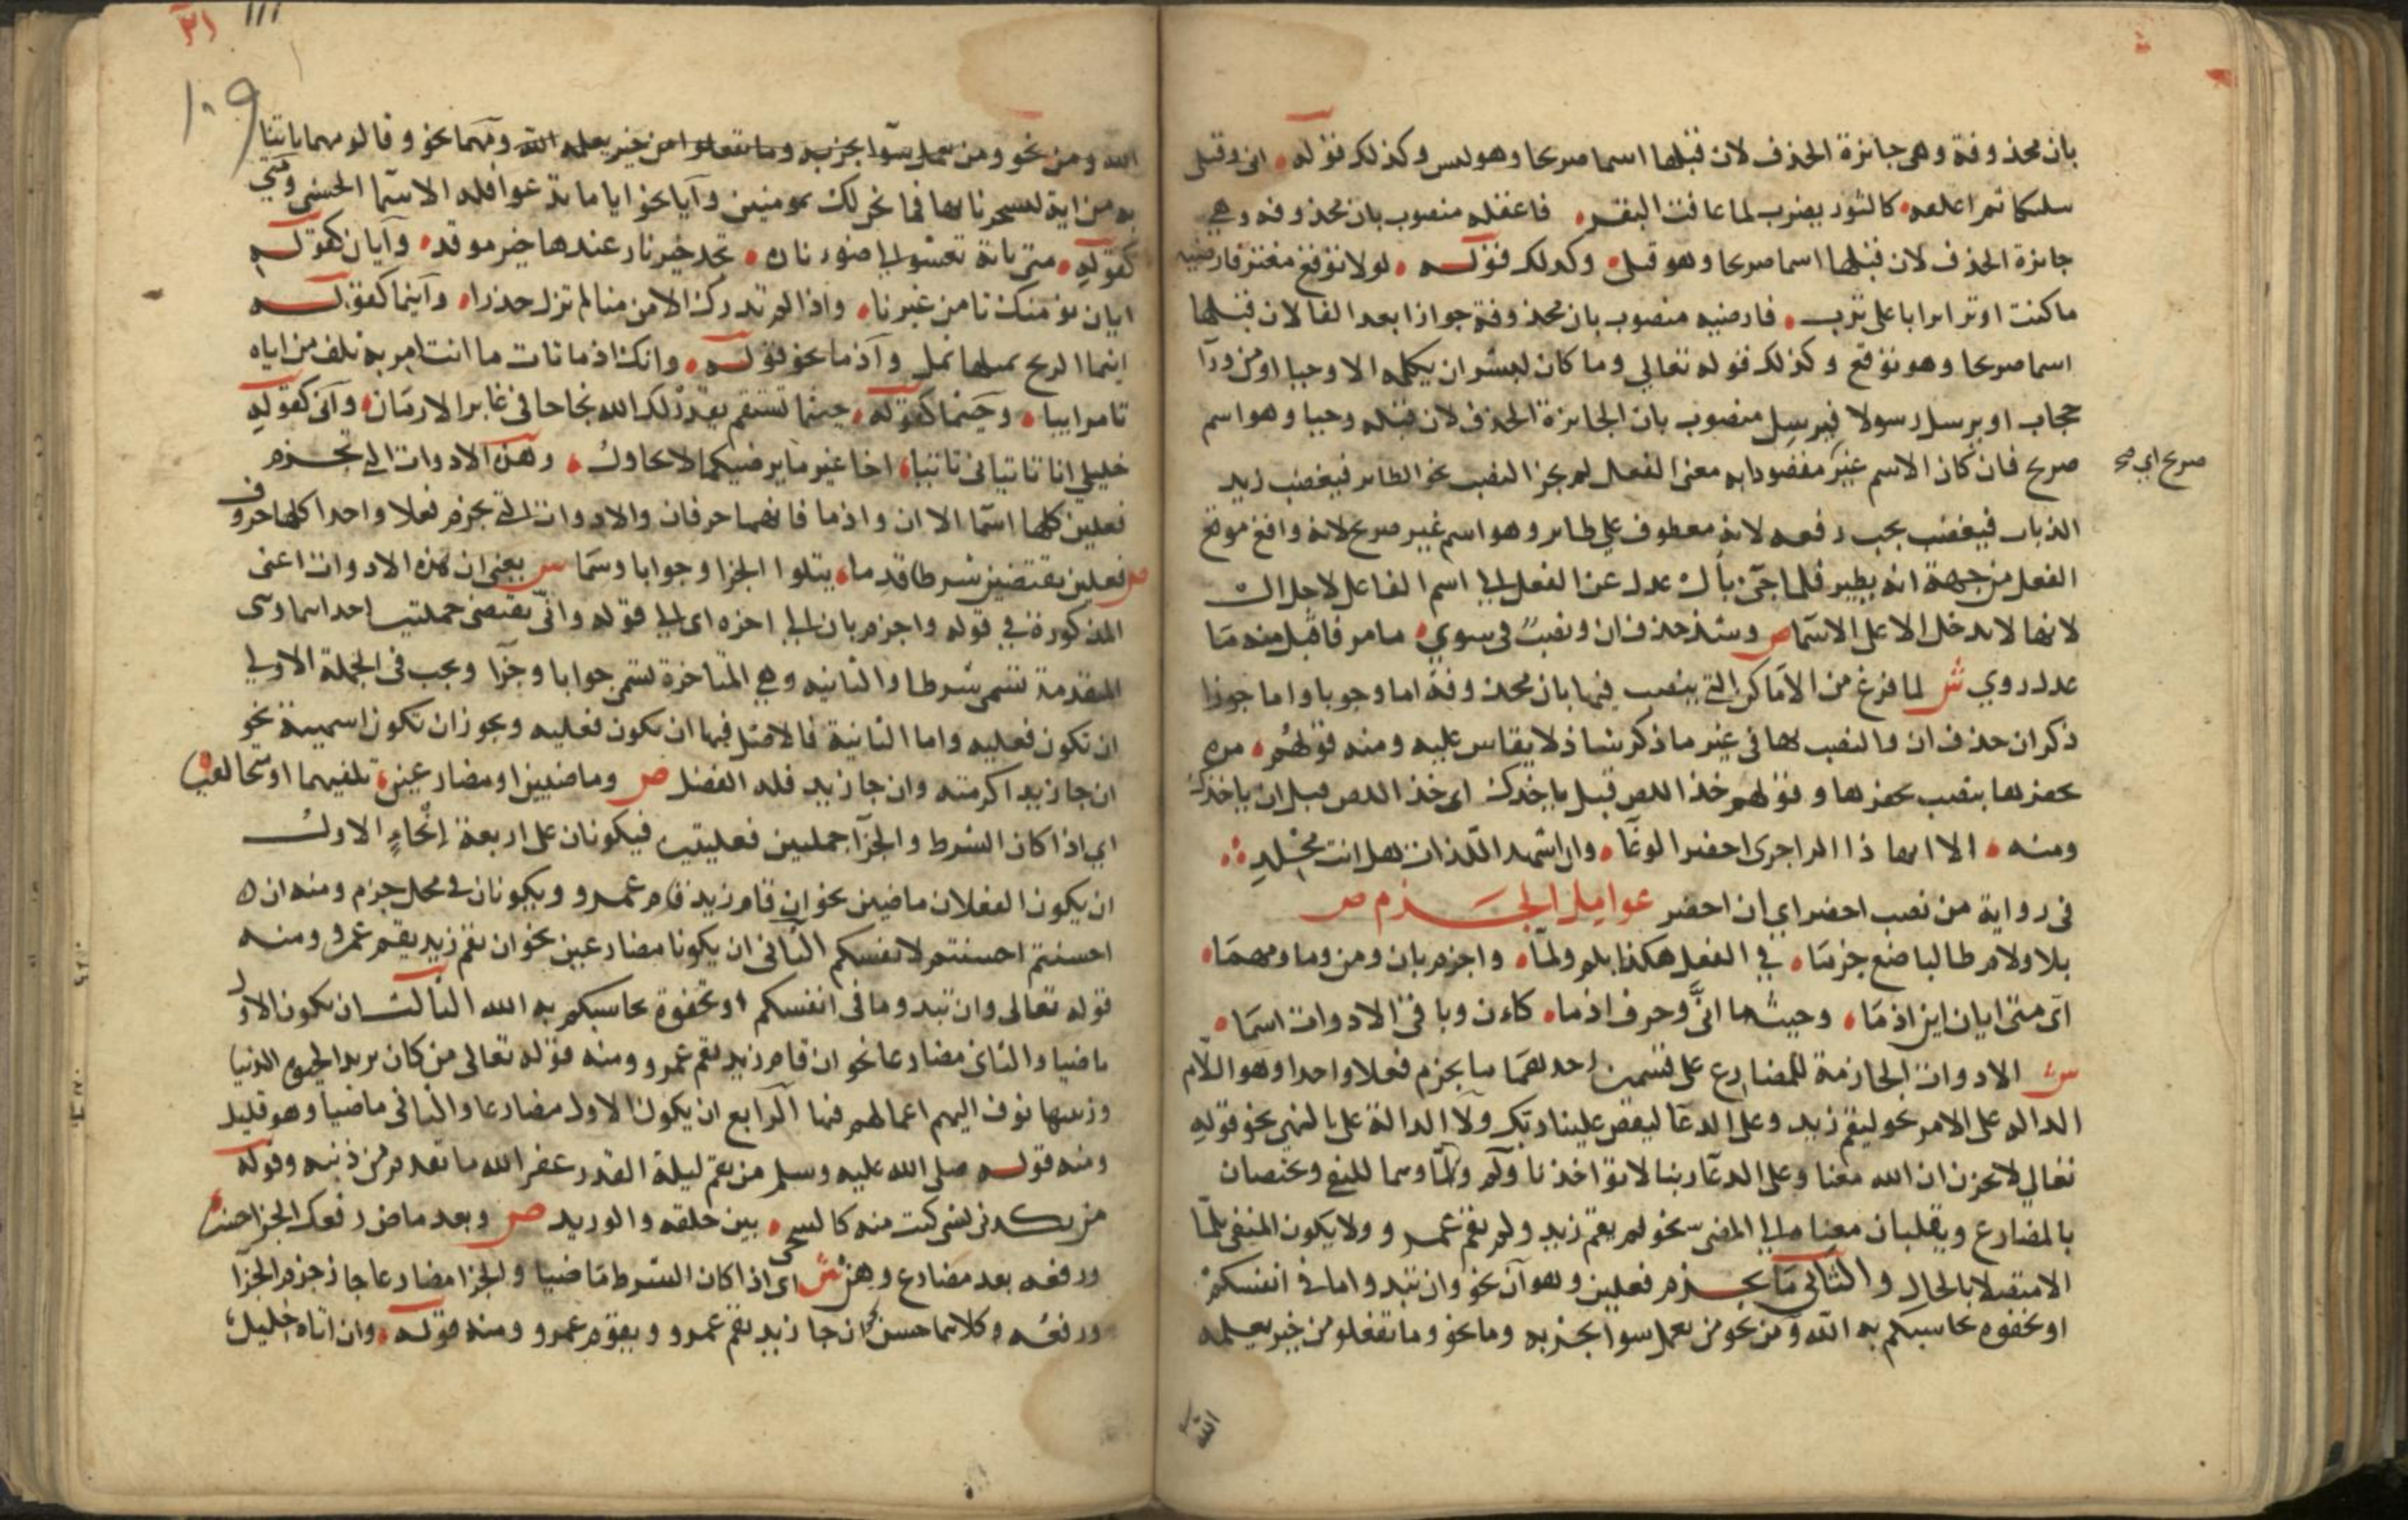 بان محذوفة وهي جائزة الحذف لان قبلها اسما صريحا وهو لبس وكذلك قوله اني وقتلي
سليكا ثم اعقله كالثور يضرب لما عافت البقر فاعقله منصوب بان محذوفة وهي
جائزة الحذف لان قبلها اسما صريحا وهو قتلي وكذلك قوله لولا توقع معتر فارضيه
ما كنت اوثر اترابا على ترب فارضيه منصوب بان محذوفة جوازا بعد الفا لان قبلها
اسما صريحا وهو توقع وكذلك قوله تعالي وما كان لبشر ان يكلمه الا وحيا او من ورآ
حجاب او يرسل رسولا فيرسل منصوب بان الجائزة الحذف لان قبله وحيا وهو اسم
صريح فان كان الاسم غير مقصودا به معنى الفعل لم يجز النصب نحو الطائر فيغضب زيد
صريح اي
الذباب فيغضب يجب رفعه لانه معطوف علي طائر وهو اسم غير صريح لانه واقع موقع
الفعل من جهة انه يطير فلما جيء بأل عدل عن الفعل الي اسم الفاعل لاجل ال
لانها لا تدخل الا على الاسما ص وشذ حذف ان ونصب في سوي ما مر فاقبل منه ما
عدل روي ش لما فرغ من الاماكن التي ينصب فيها بان محذوفة اما وجوبا واما جوازا
ذكر ان حذف ان والنصب بها في غير ما ذكر شاذ لا يقاس عليه ومنه قولهم مره
يحفرها بنصب يحفرها وقولهم خذ اللص قبل ياخذك اي خذ اللص قبل ان ياخذك
ومنه الا ايها ذا الزاجري احضر الوغا وان اشهد اللذات هل انت مخلدي
في رواية من نصب احضر اي ان احضر عوامل الجزم ص
بلا ولام طالبا ضع جزما في الفعل هكذا بلم ولما واجزم بان ومن وما ومهما
اي متى ايان اين اذما وحيثما انى وحرف اذما كان وباقي الادوات اسما
ش الادوات الجازمة للمضارع على قسمين احدهما ما يجزم فعلا واحدا وهو اللام
الدالة على الامر نحو ليقم زيد وعلى الدعا ليقض علينا ربك ولا الدالة على النهي نحو قوله
تعالي لا تحزن ان الله معنا وعلى الدعا ربنا لا تؤاخذنا ولم ولما وهما للنفي ويختصان
بالمضارع ويقلبان معناه الي المضي نحو لم يقم زيد ولم يقم عمرو ولا يكون المنفي بلما
الا متصلا بالحال والثاني ما يجزم فعلين وهو ان نحو وان تبدوا ما في انفسكم
او تخفوه يحاسبكم به الله ومن نحو من يعمل سوا يجز به وما نحو وما تفعلوا من خير يعلمه
الله
١١١ ٣١
١٠٩
الله ومن نحو ومن يعمل سوا يجز به وما تفعلوا من خير يعلمه الله ومهما نحو وقالوا مهما تاتنا
به من اية لتسحرنا بها فما نحن لك بمومنين وايا نحو ايا ما تدعوا فله الاسما الحسنى ومتي
كقوله متى تاته تعشو الي ضوء ناره تجد خير نار عندها خير موقد وايان كقوله
ايان نؤمنك تامن غيرنا واذا لم تدرك الامن منا لم تزل حذرا واينما كقوله
اينما الريح تميلها تمل واذما نحو قوله وانك اذما تات ما انت امر به تلف من اياه
تامر ابيا وحيثما كقوله حيثما تستقم يقدر لك الله نجاحا في غابر الازمان وانى كقوله
خليلي انا تاتياني تاتيا اخا غير ما يرضيكما لا يحاول وهذه الادوات التي تجزم
فعلين كلها اسما الا ان واذما فانهما حرفان والادوات التي تجزم فعلا واحدا كلها حروف
ص فعلين يقتضين شرط قدما يتلوا الجزا وجوابا وسما ش يعني ان هذه الادوات اعني
المذكورة في قوله واجزم بان الي اخره اي الي قوله وانى تقتضي جملتين احداهما وهي
المتقدمة تسمى شرطا والثانيه وهي المتاخرة تسمى جوابا وجزا ويجب في الجملة الاولي
ان تكون فعليه واما الثانية فالاصل فيها ان تكون فعليه ويجوز ان تكون اسمية نحو
ان جا زيد اكرمته وان جا زيد فله الفضل ص وماضيين او مضارعين تلفيهما او متخالفين
اي اذا كان الشرط والجزا جملتين فعليتين فيكونان على اربعة انحاء الاول
ان يكون الفعلان ماضيين نحو ان قام زيد قام عمرو ويكونان في محل جزم ومنه ان
احسنتم احسنتم لانفسكم الثاني ان يكونا مضارعين نحو ان يقم زيد يقم عمرو ومنه
قوله تعالى وان تبدوا ما في انفسكم او تخفوه يحاسبكم به الله الثالث ان يكون الاول
ماضيا والثاني مضارعا نحو ان قام زيد يقم عمرو ومنه قوله تعالى من كان يريد الحيوة الدنيا
وزينتها نوف اليهم اعمالهم فيها الرابع ان يكون الاول مضارعا والثاني ماضيا وهو قليل
ومنه قوله صلى الله عليه وسلم من يقم ليلة القدر غفر الله ما تقدم من ذنبه وقوله
من يكدني بشي كنت منه كالشجى بين حلقه والوريد ص وبعد ماض رفعك الجزا حسن
ورفعه بعد مضارع وهن ش اي اذا كان الشرط ماضيا والجزا مضارعا جاز جزم الجزا
ورفعه وكلاهما حسن نحو ان جا زيد يقم عمرو ويقوم عمرو ومنه قوله وان اتاه خليل